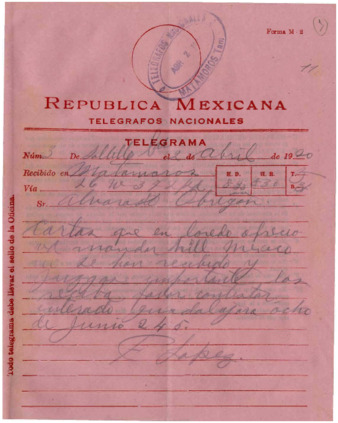 Forma N-2
TELEGRAFOS NACIONALES
ABR 2
MATAMOROS TAM
REPUBLICA MEXICANA
TELEGRAFOS NACIONALES
TELEGRAMA
Núm. 3 De Saltillo el 2 de Abril de 1920
Recibido en Matamoros H. D. H. R.
Vía
Sr. Alvaro Obregón
Cartas que en ofrecio
mandar hill Mexico
no se han recibido y
importante las
reciba favor contestar
enterado Guadalajara ocho
de Junio 245.
F Lopez.
Todo telegrama debe llevar el sello de la Oficina.